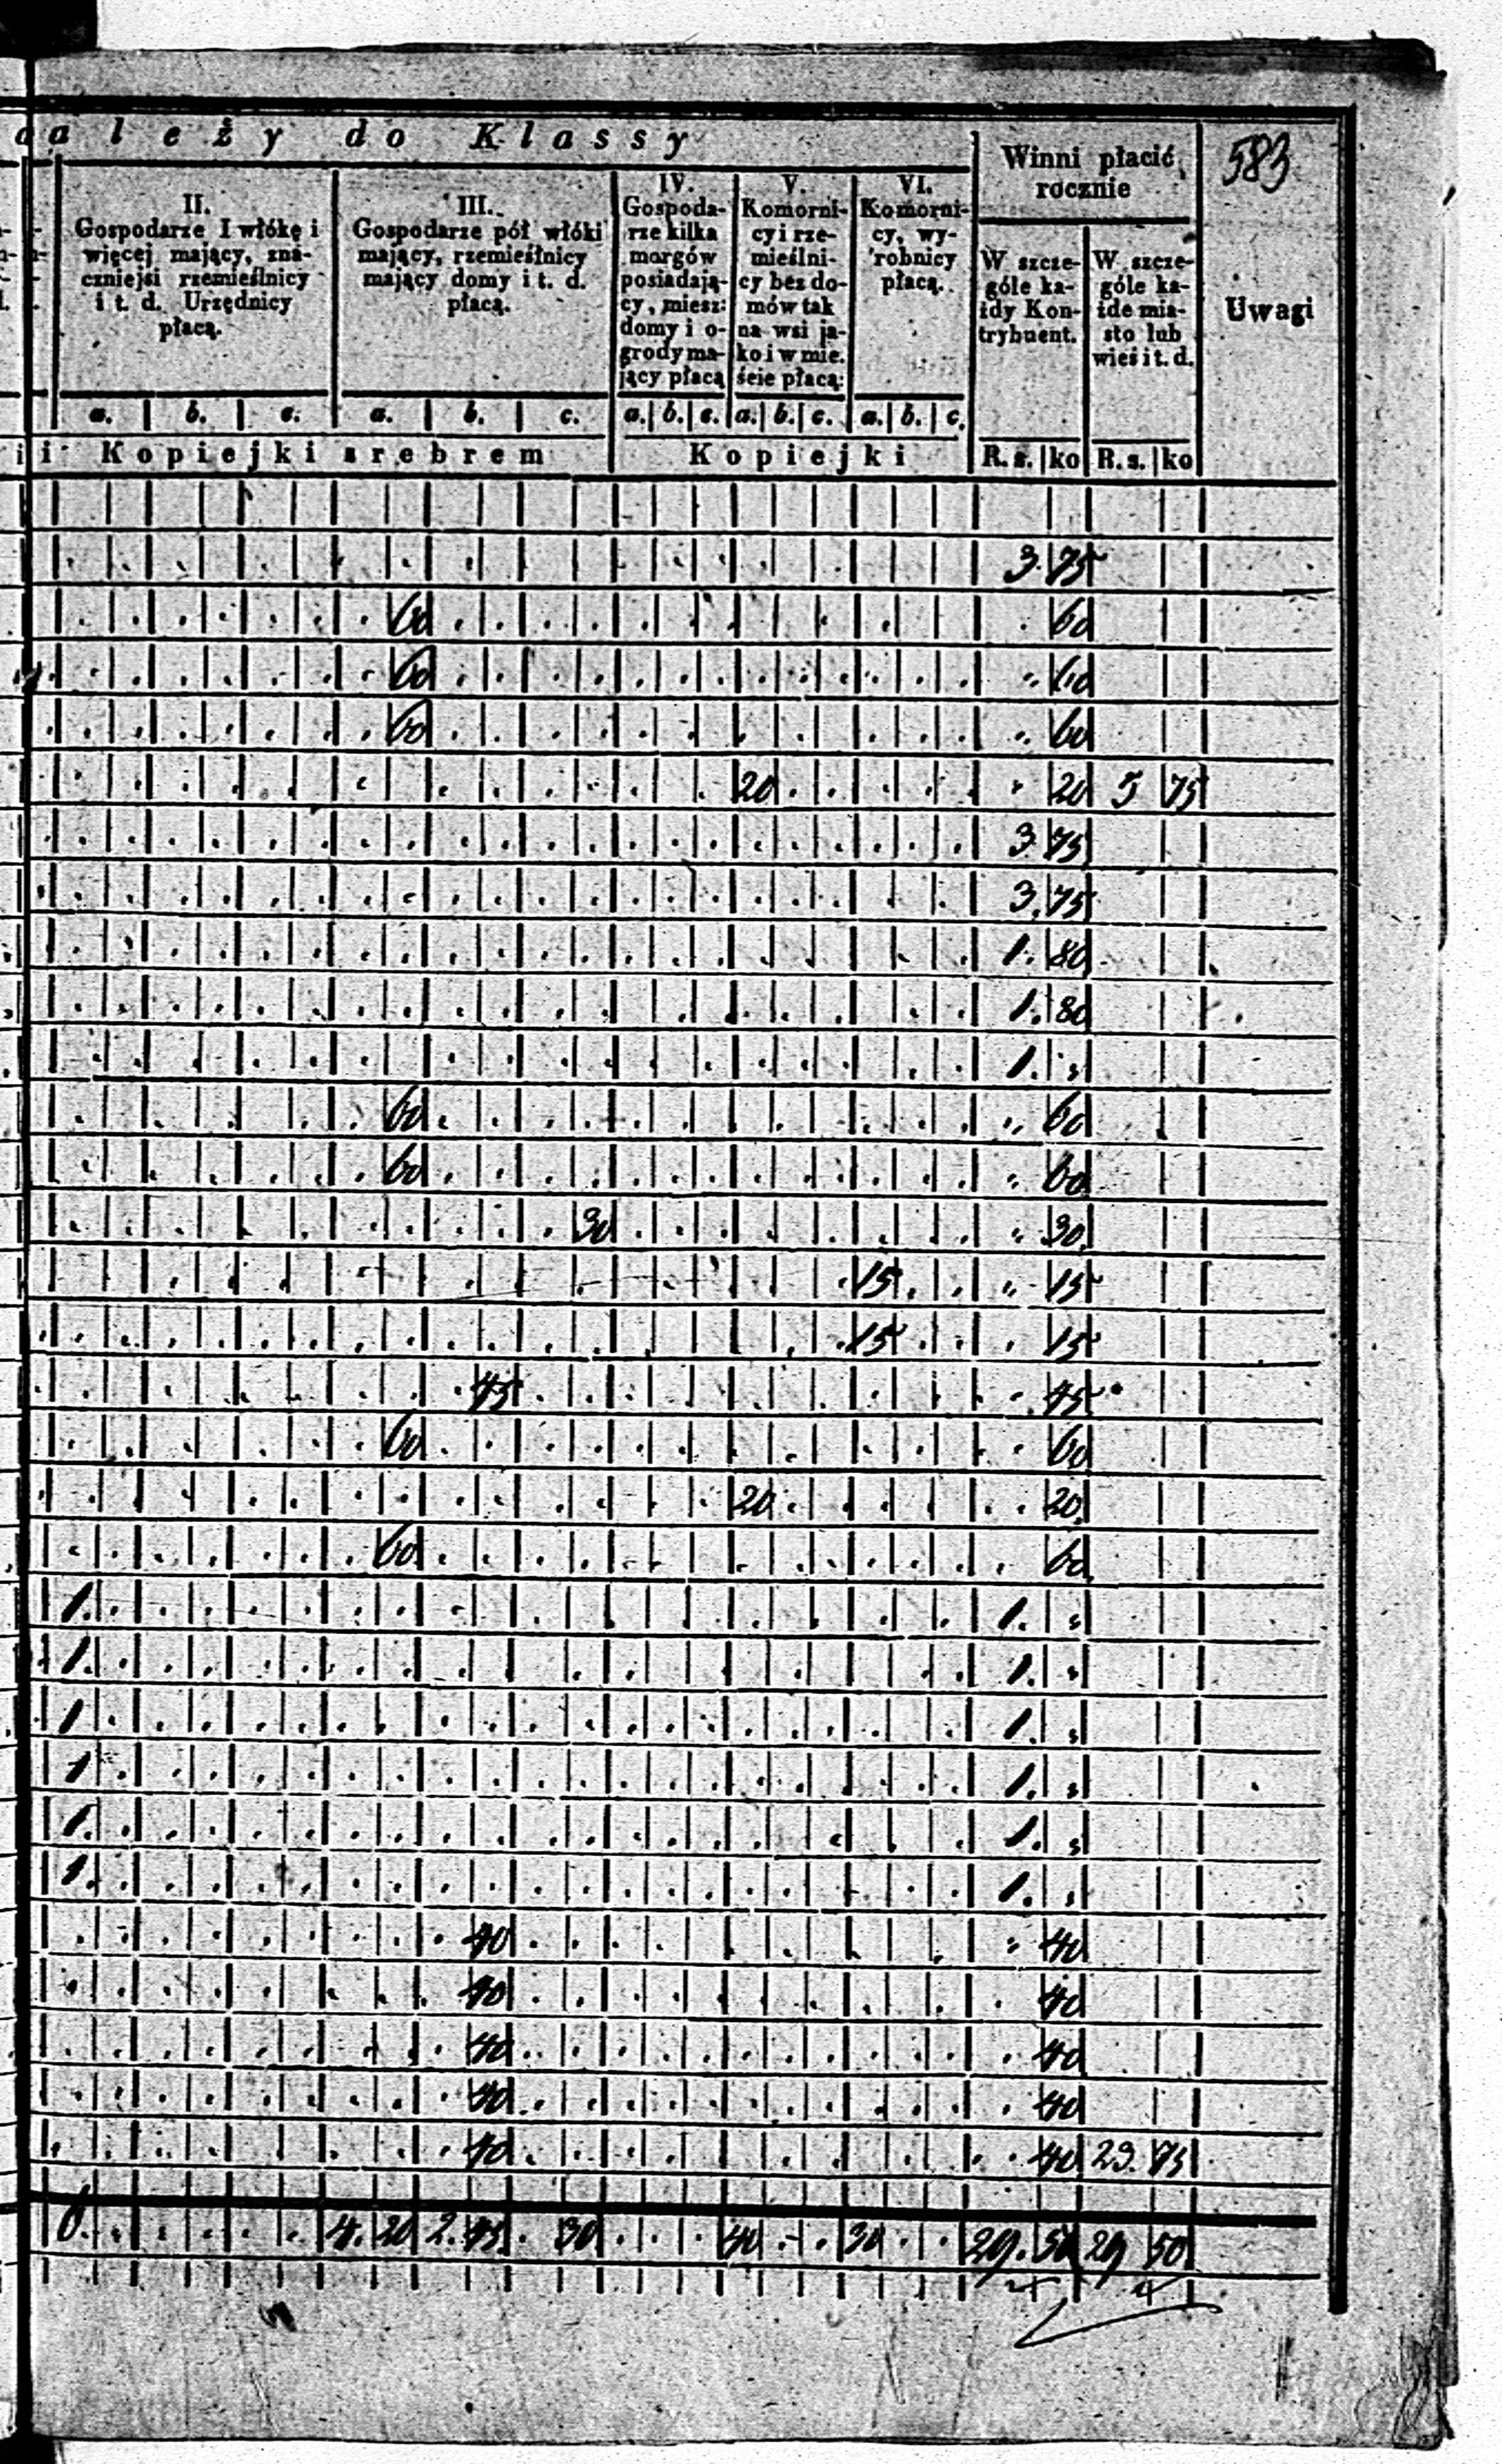 należy do Klassy
583
Winni płacić rocznie
II.
Gospodarze I włókę i
więcej mający, zna-
czniejsi rzemieślnicy
i t. d. Urzędnicy
płacą.
III.
Gospodarze pół włóki
mający, rzemieślnicy
mający domy i t. d.
płacą.
IV.
Gospoda-
rze kilka
morgów
posiadają-
cy, miesz:
domy i o-
grody ma-
jący płacą
V.
Komorni-
cy i rze-
mieślni-
cy bez do-
mów tak
na wsi ja-
ko i w mie.
ście płacą:
VI.
Komorni-
cy, wy-
robnicy
płacą.
W szcze-
góle ka-
żdy Kon-
trybuent.
W szcze-
góle ka-
żde mia-
sto lub
wieś i t. d.
Uwagi
a. b. c. a. b. c. a. b. c. a. b. c. a. b. c.
i Kopiejki srebrem Kopiejki R. s. ko R. s. ko
3. 75
60 60
60 60
60 60
20 20 5 75
3. 75
3. 75
1. 80
1. 80
1.
60 60
60 60
30 30
15 15
15 15
45 45
60 60
20 20
60 60
1. 1.
1. 1.
1 1.
1 1.
1. 1.
1. 1.
40 40
40 40
40 40
40 40
40 40 23. 75
6. 4. 20 2. 45 30 40 30 29. 50 29 50